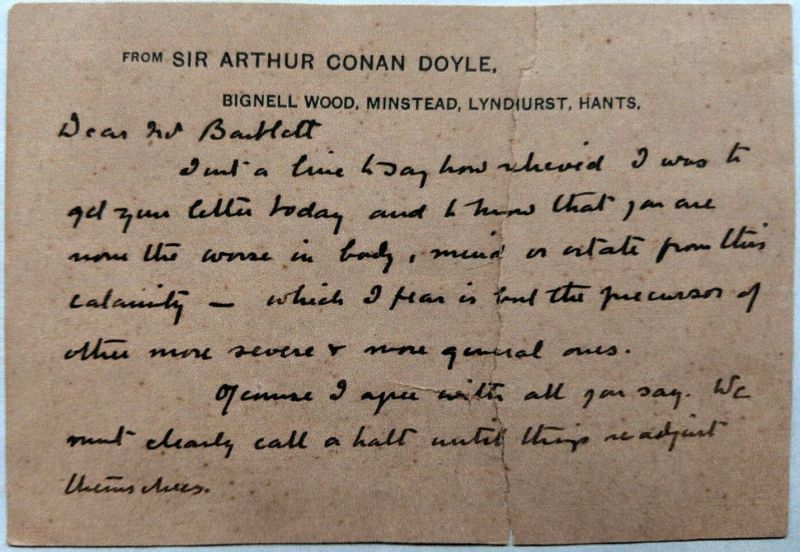 FROM SIR ARTHUR CONAN DOYLE,
BIGNELL WOOD, MINSTEAD, LYNDHURST, HANTS.
Dear Mr Bartlett
Just a line to say how relieved I was to
get your letter today and to know that you are
none the worse in body, mind or estate from this
calamity — which I fear is but the precursor of
other more severe & more general ones.
Of course I agree with all you say. We
must clearly call a halt until things readjust
themselves.